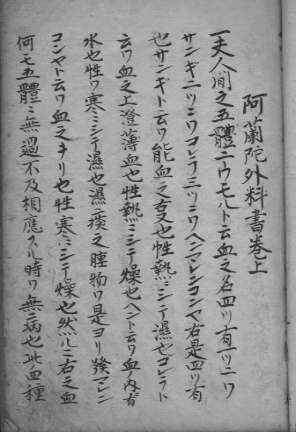 阿蘭陀外科書巻上
一夫人間之五體ニウモルト云血之名四ツ有一ツニワ
サンキ二ツニワコレラ三ツニワヘンマレンコンヤ右是四ツ有
也サンギト云ワ能血之支也性熱ニシテ濕也コレラト
云ワ血之上澄薄血也性熱ニシテ燥也ヘント云ワ血ノ内有
水也性ワ寒ニシテ濕也濕痰之腫物ワ是ヨリ發マレン
コンヤト云ワ血之ヲリ也性寒ニシテ燥也然ルニ右之血
何モ五體ニ無過不及相應スル時ワ無病也此血種